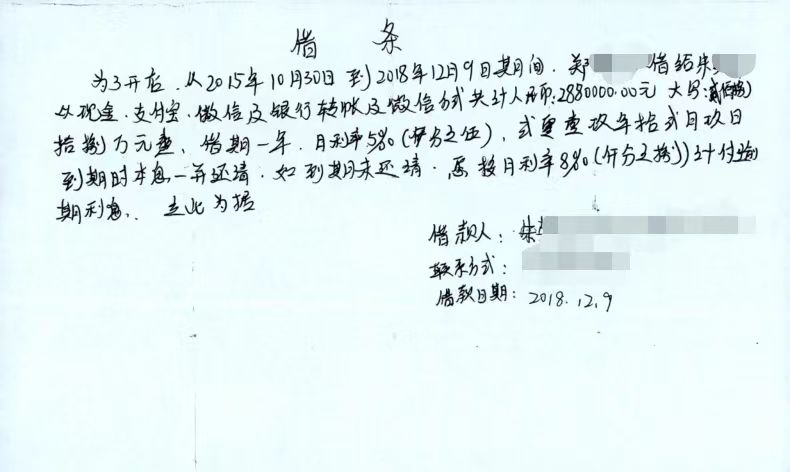 借 条
为了开店，从2015年10月30日到2018年12月9日其期间，郑 借给朱
以现金、支付宝、微信及银行转帐及微信方式共计人民币:2880000.00元 大写:贰佰捌
拾捌万元整，借期一年，月利率5‰(仟分之伍)，贰零壹玖年拾贰月玖日
到期时本息一并还请，如到期未还请，愿按月利率8‰(仟分之捌)计付逾
期利息。立此为据
借款人：朱
联系方式：
借款日期：2018.12.9